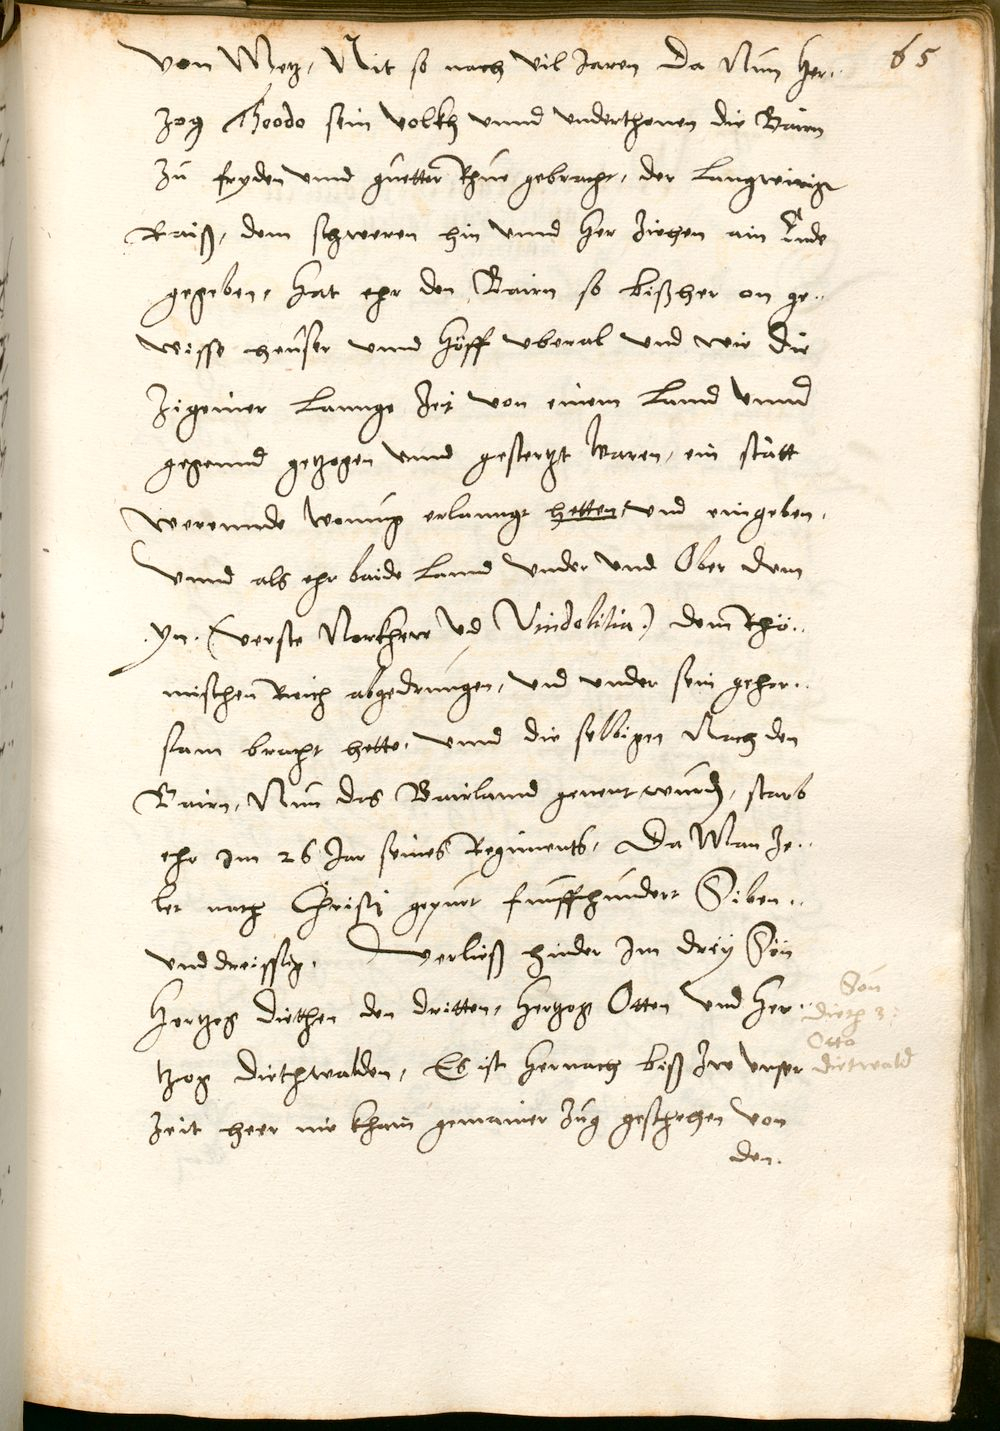 65
von Metz, Nit so nach vil Jaren Da Nun Her..
zog Theodo sein volkh vnnd vnderthonen die Bairn
zu fryden vnnd guetter Rhue gebracht, der Langwirige
Raiß, dem schweren hin vnnd Her ziechen ain Ende
gegeben, Hat ehr den Bairn so bißher on ge..
wisse heuser vnnd Höff vberal vnd wie die
Zigeiner Lannge Zeit von einem Lannd vnnd
gegennd getzogen vnnd gestertzt waren, ein statt
werennde wonung erlanngt hetten, vnd eingeben,
vnnd als ehr baide Lannd vnder vnd Ober dem
.yn. (verste Norkhew vnd Vindelitia) dem Rhö..
mischen Reich abgedrungen, vnd vnder sein gehor..
sam bracht hette, vnnd die selbigen Nach den
Bairn, Nun das Bairlannd genent wurd, starb
ehr Im 26 Jar seines Regiments, Da Man Ze..
let nach Christj gepurt funffhundert Siben..
vnd dreissig, verließ hinder Im drey Sön
Hertzog Diethen den dritten, Hertzog Otten vnd Her..
tzog Diethwalden, Es ist Hernach biß zw vnser
Zeit heer nie khain gemainer Zug geschehen von
den.
Sön
Dieth 3:
Otto
Dietwald